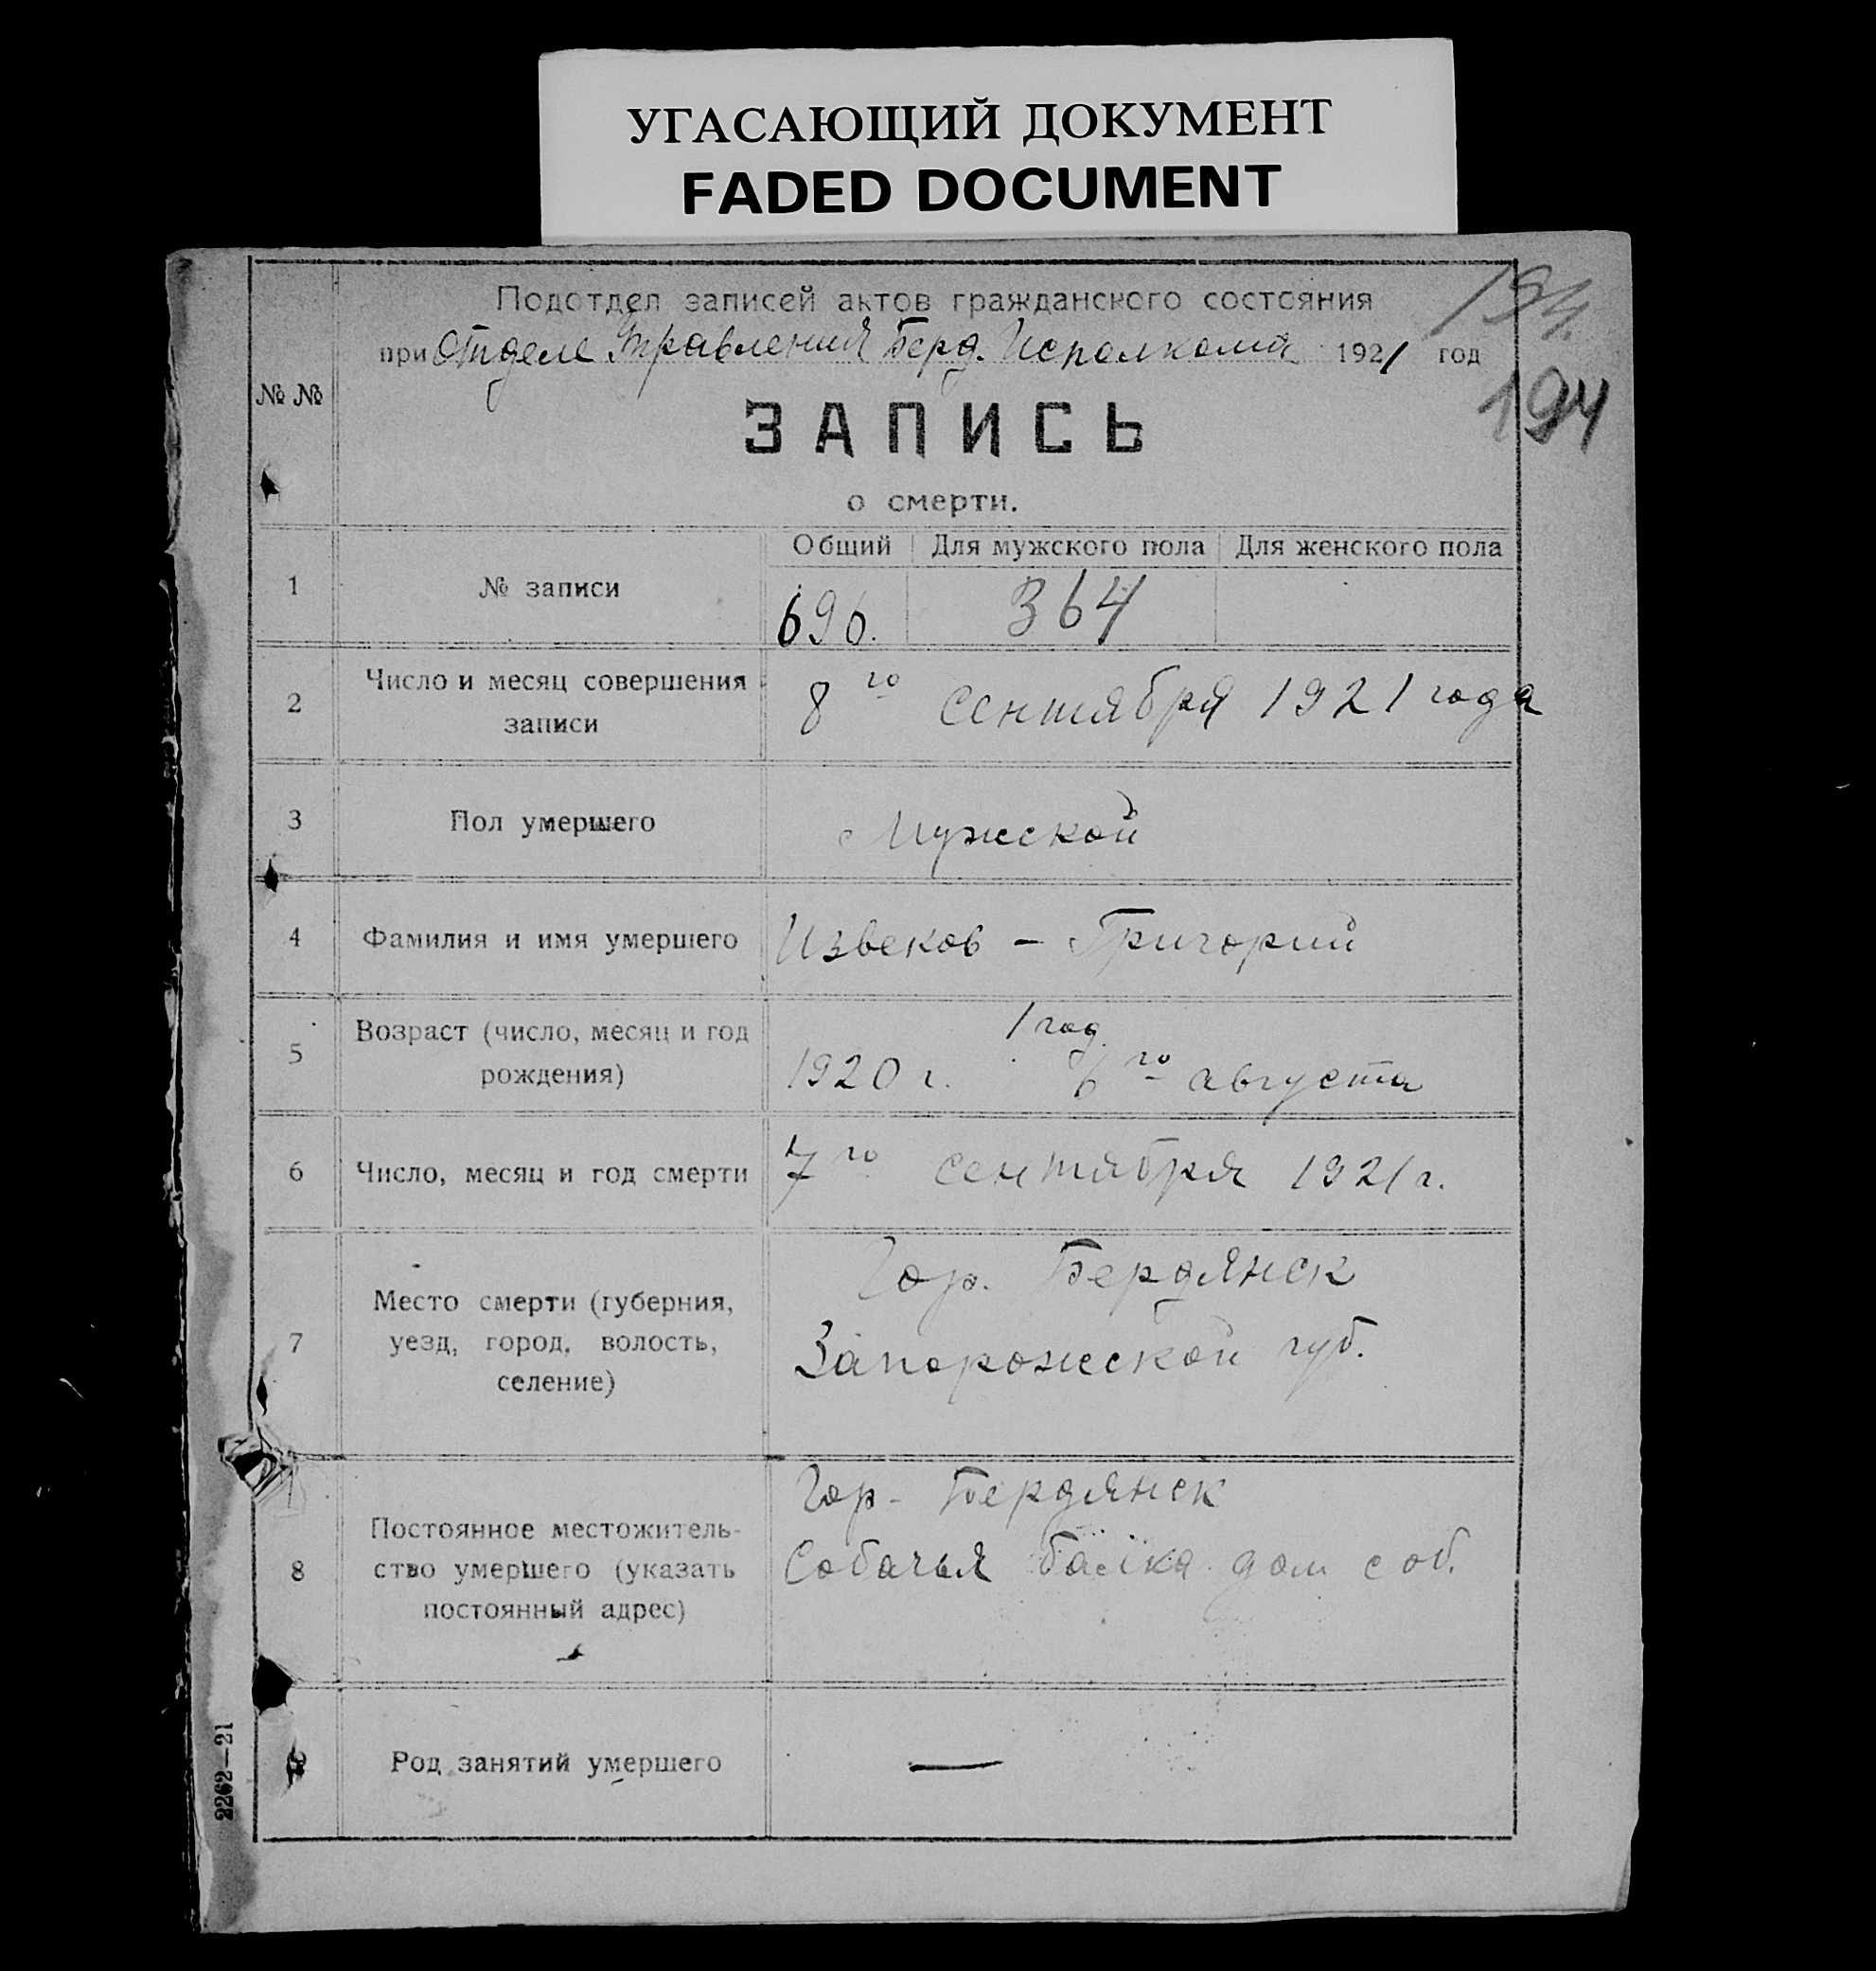 УГАСАЮЩИЙ ДОКУМЕНТ
FADED DOCUMENT
194.
Подотдел записей актов гражданского состояния
при Отделе Управления Берд. Исполкома 1921 год
194
№ №
ЗАПИСЬ
о смерти.
Общий Для мужского пола Для женского пола
1 № записи 696. 364
2 Число и месяц совершения
записи
8 го сентября 1921 года
3 Пол умершего Мужской
4 Фамилия и имя умершего Извеков - Григорий
5 Возраст (число, месяц и год
рождения)
1 год.
1920 г. 6 го августа
6 Число, месяц и год смерти 7 го сентября 1921 г.
7 Место смерти (губерния,
уезд, город, волость,
селение)
Гор. Бердянск
Запорожской губ.
8 Постоянное местожитель-
ство умершего (указать
постоянный адрес)
Гор- Бердянск
Собачья балка дом соб.
9 Род занятий умершего —
2262—21